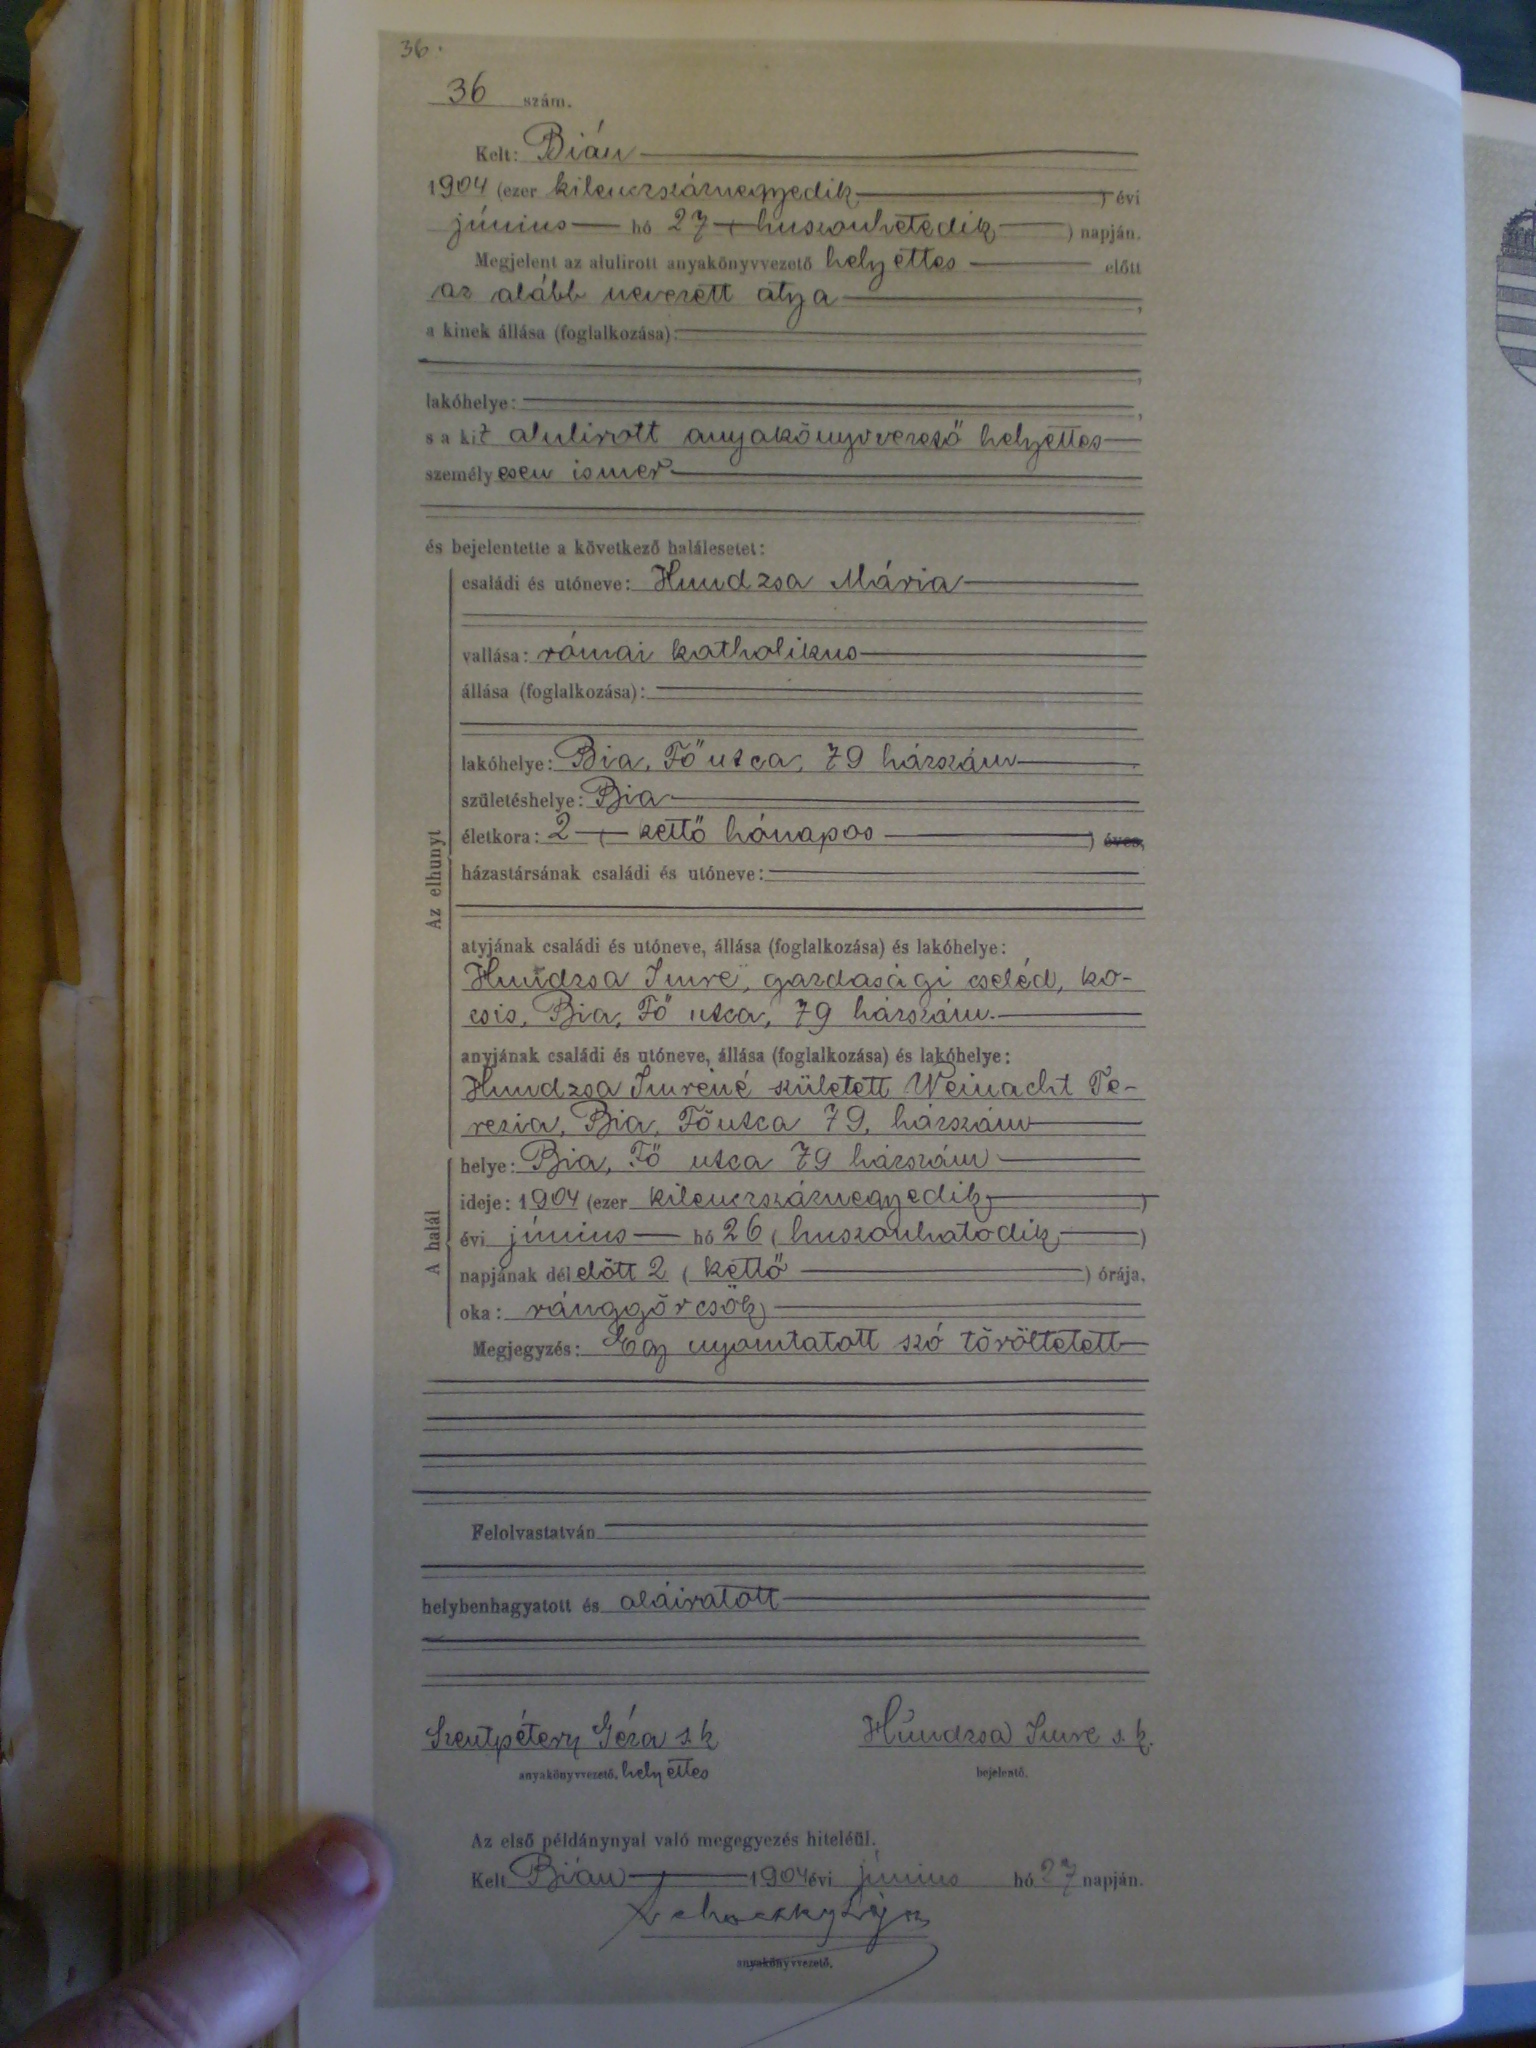 36.
36 szám.
Kelt: Bián
1904 (ezer kilenczszáznegyedik ) évi
június hó 27 ( huszonhetedik ) napján.
Megjelent az alulirott anyakönyvvezető helyettes előtt
az alább nevezett atya ,
a kinek állása (foglalkozása):
,
lakóhelye: ,
s a kit alulirott anyakönyvvezető helyettes
személyesen ismer
és bejelentette a következő halálesetet:
Az elhunyt
családi és utóneve: Hundzsa Mária
vallása: római katholikus
állása (foglalkozása):
lakóhelye: Bia, Fő utca, 79 házszám
születéshelye: Bia
életkora: 2 ( kettő hónapos ) éves,
házastársának családi és utóneve:
atyjának családi és utóneve, állása (foglalkozása) és lakóhelye:
Hundzsa Imre, gazdasági cseléd, ko-
csis, Bia, Fő utca, 79 házszám.
anyjának családi és utóneve, állása (foglalkozása) és lakóhelye:
Hundzsa Imréné született Weinacht Te-
rezia, Bia, Fő utca 79, házszám
A halál
helye: Bia, Fő utca 79 házszám
ideje: 1904 (ezer kilenczszáznegyedik )
évi június hó 26 ( huszonhatodik )
napjának délelőtt 2 ( kettő ) órája,
oka: ránggörcsök
Megjegyzés: Egy nyomtatott szó töröltetett
Felolvastatván
helybenhagyatott és aláiratott
Szentpétery Géza s. k Hundzsa Imre s. k.
anyakönyvvezető, helyettes bejelentő.
Az első példánynyal való megegyezés hiteléül.
Kelt Bián 1904 évi június hó 27 napján.
anyakönyvvezető.